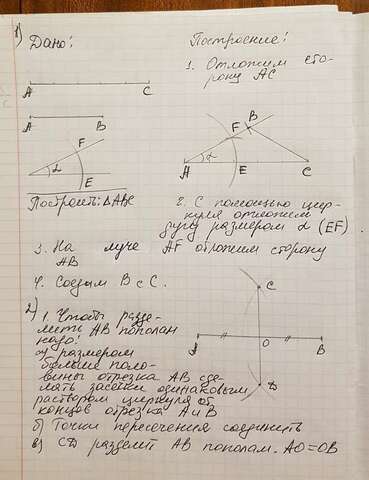 1) Дано:
Построение:
1. Отложим сто-
рону AC
A C
A B
F
α
E
Построить: ΔABC
F B
α
A E C
2. С помощью цир-
куля отложим
дугу размером α (EF)
3. На луче AF отложим сторону
AB
4. Соедим B с C.
2) 1. Чтобы разде-
лить AB пополам
надо:
а) размером
больше поло-
вины отрезка AB сде-
лать засечки одинаковым
раствором циркуля от
концов отрезка A и B
C
A O B
D
б) Точки пересечения соединить
в) CD разделит AB пополам. AO=OB